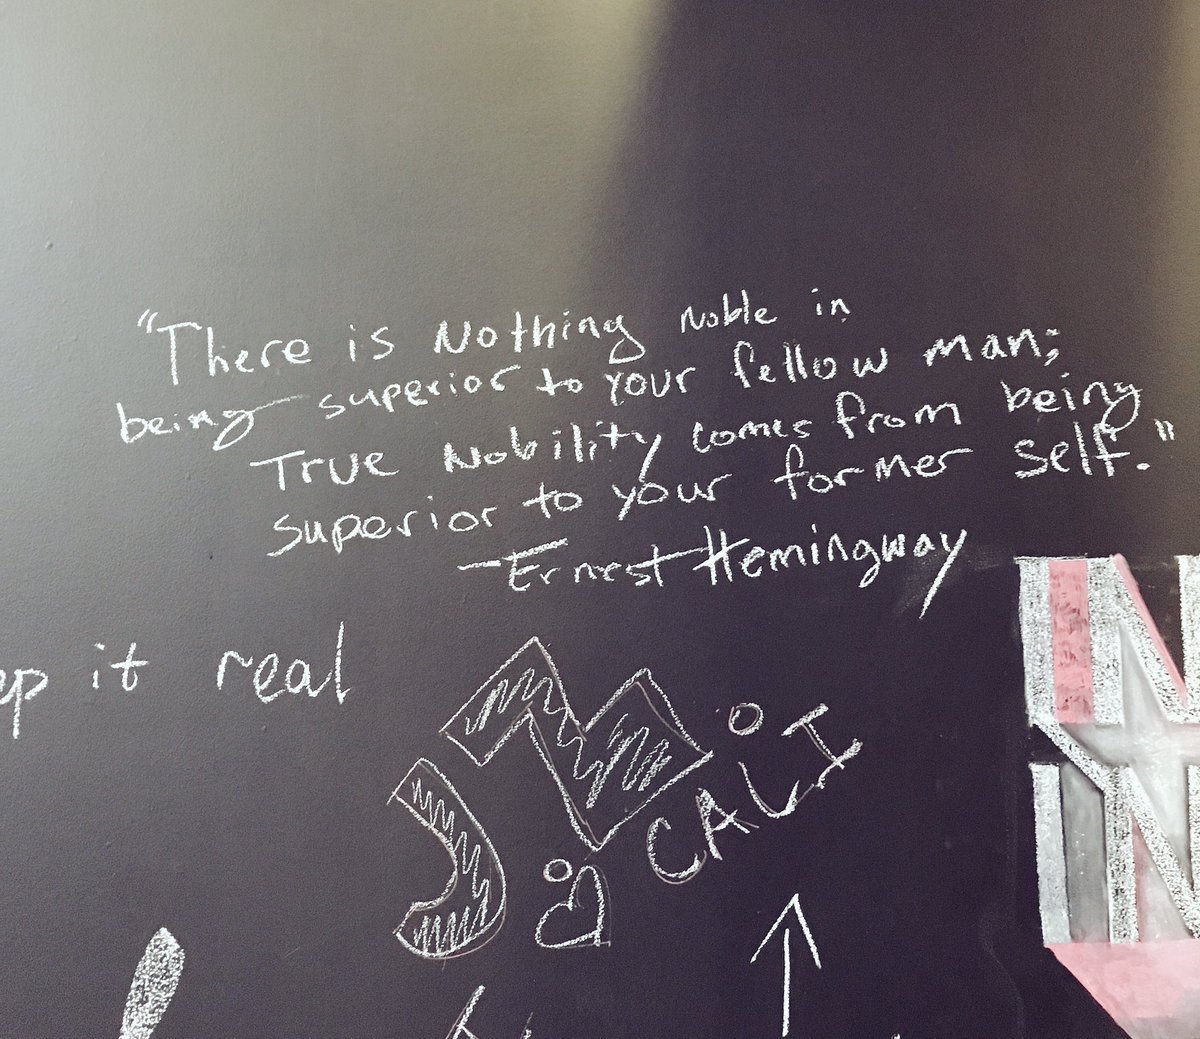 "There is Nothing Noble in
being superior to your fellow man;
True Nobility comes from being
superior to your former self."
- Ernest Hemingway
ep it real
JM
CALI